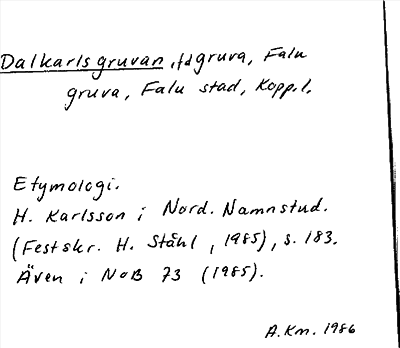 Dalkarlsgruvan, fd gruva, Falu
gruva, Falu stad, Kopp.l.
Etymologi.
H. Karlsson i Nord. Namnstud.
(Festskr. H. Ståhl, 1985), s. 183.
Även i NoB 73 (1985).
A.Km. 1986